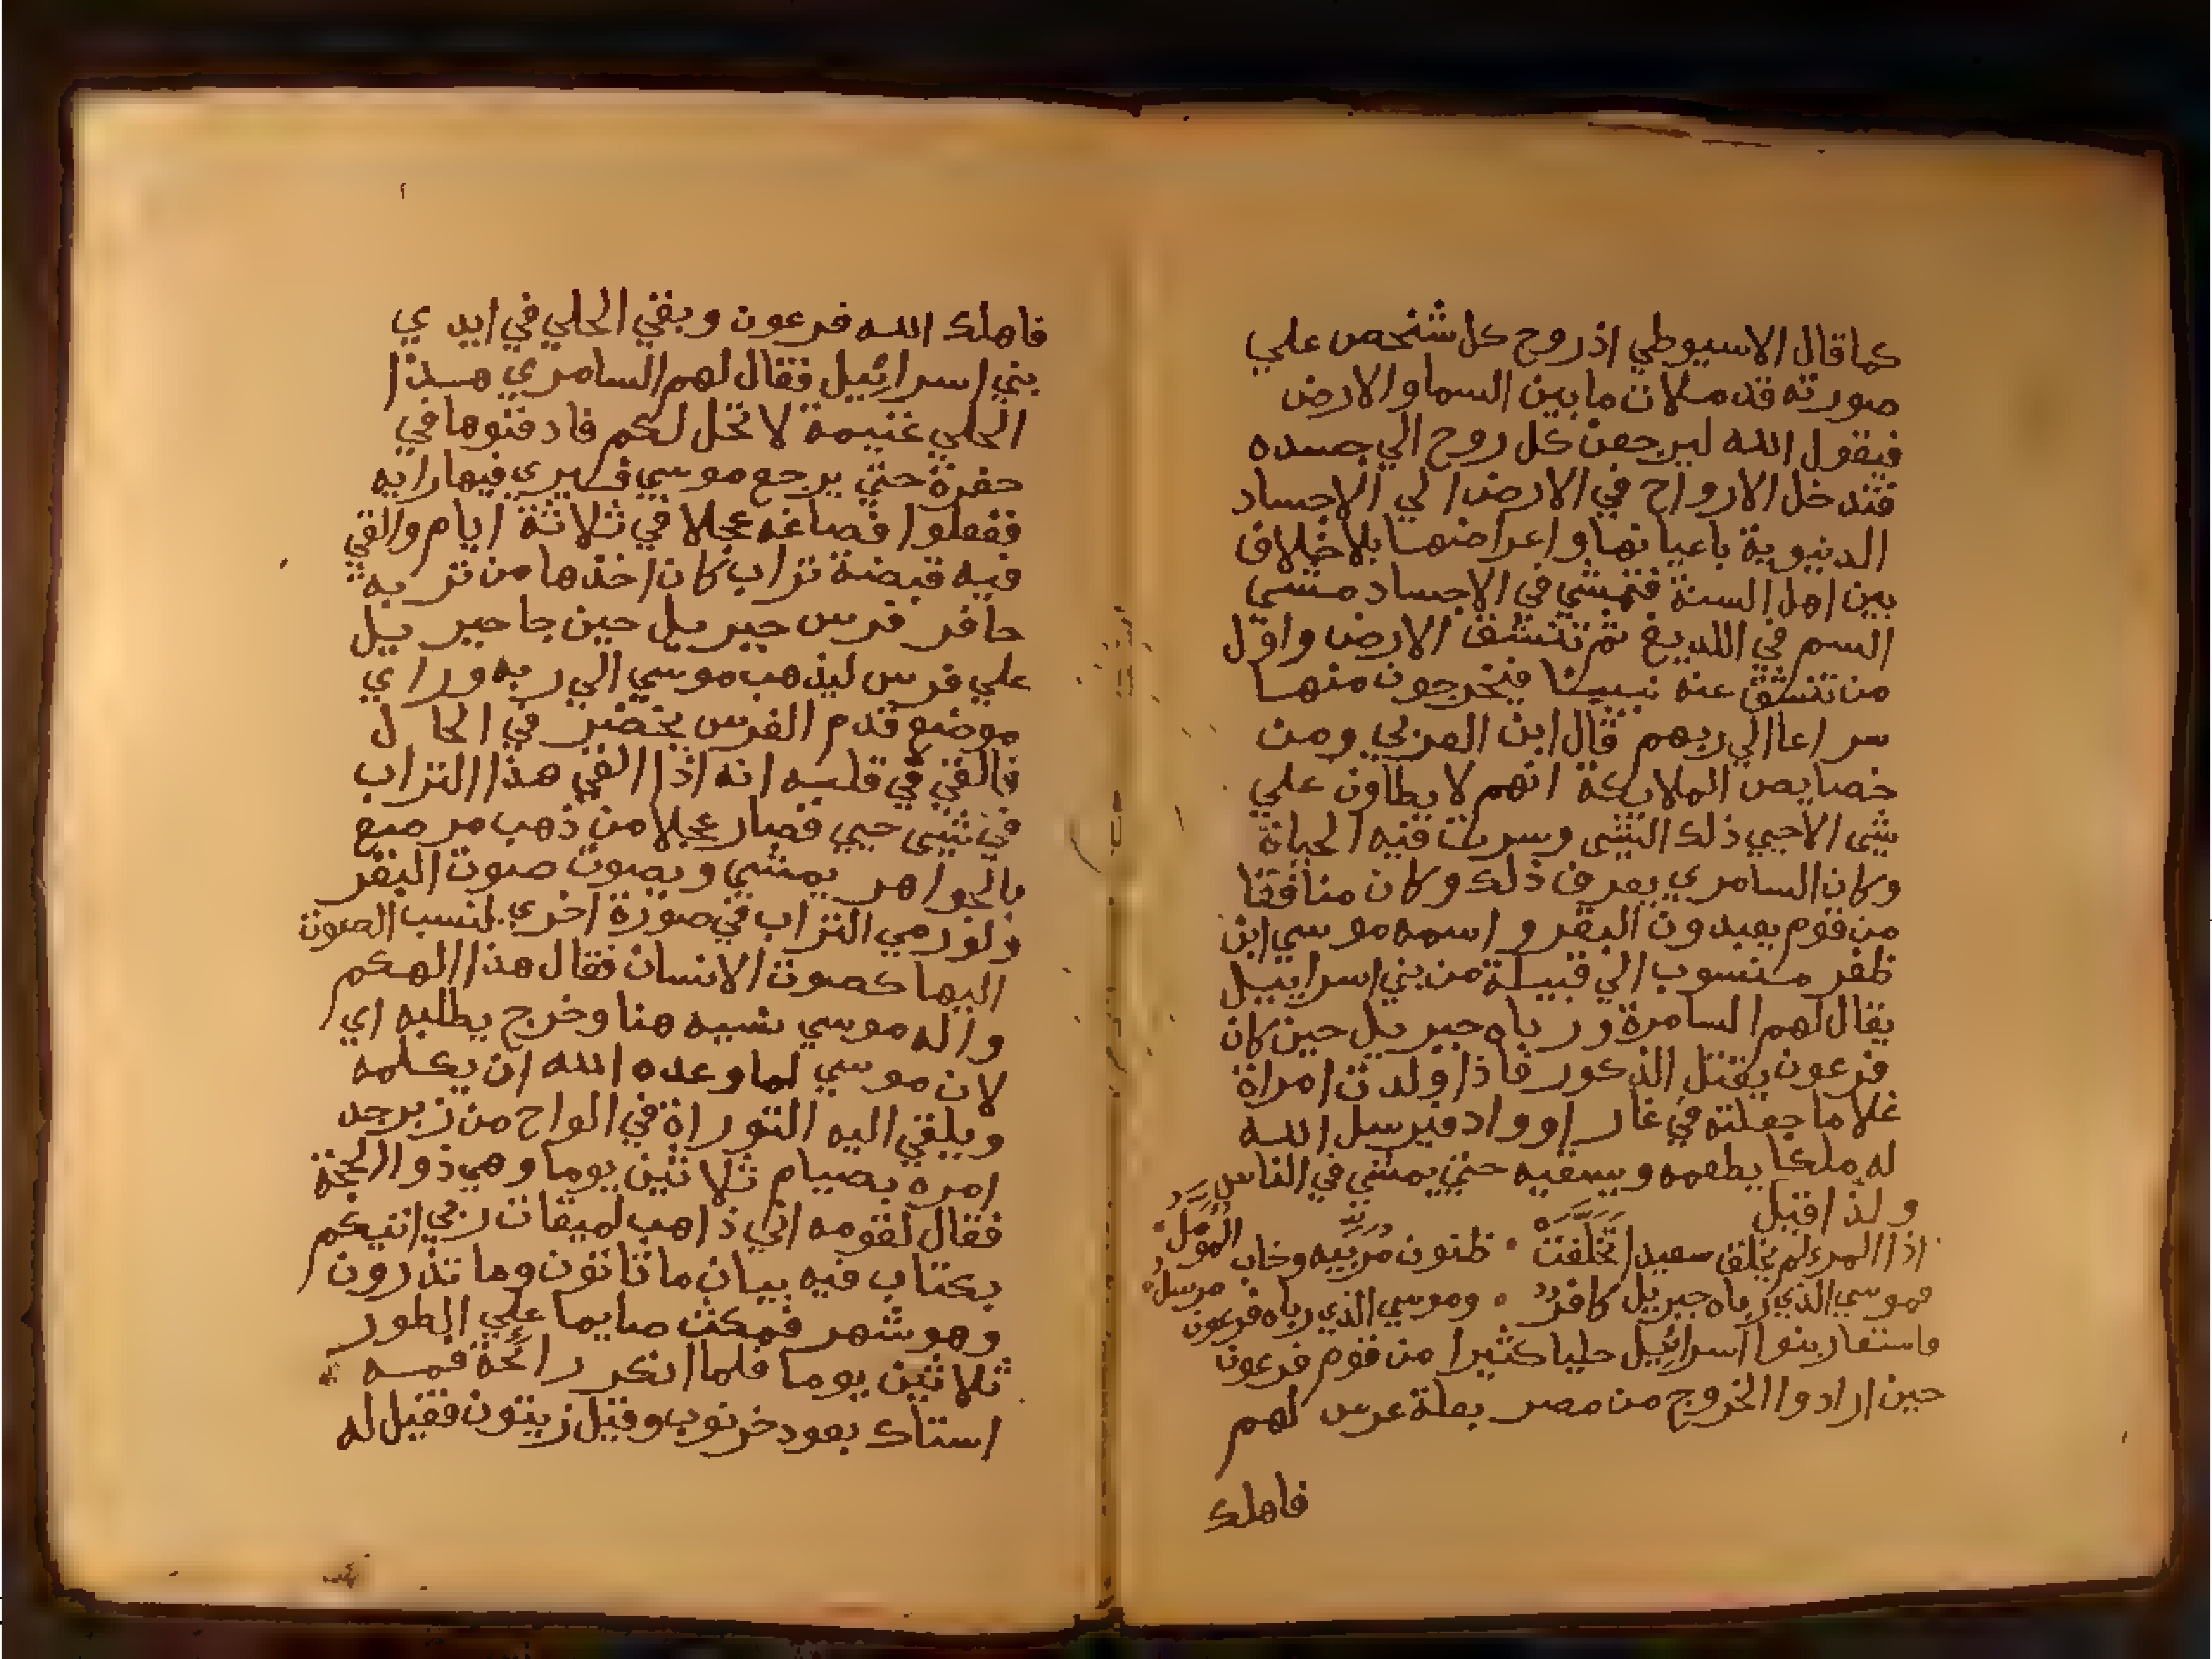 كما قال الاسيوطي اذ روح كل شخص علي
صورته قد ملات ما بين السما والارض
فيقول الله ليرجعن كل روح الي جسده
فتدخل الارواح في الارض الي الاجساد
الدنيوية باعيانها واعراضها بلا خلاف
بين اهل السنة فتمشي في الاجساد مشي
السم في اللديغ ثم تنشق الارض واول
من تنشق عنه نبينا فيخرجون منها
سراعا الي ربهم قال ابن العربي ومن
خصايص الملايكة انهم لا يطاون علي
شي الا حيي ذلك الشي وسرت فيه الحياة
وكان السامري يعرف ذلك وكان منافقا
من قوم يعبدون البقر واسمه موسي ابن
ظفر منسوب الي قبيلة من بني اسراييل
يقال لهم السامرة ورباه جبريل حين كان
فرعون يقتل الذكور فاذا ولدت امراة
غلاما جعلته في غار او واد فيرسل الله
له ملكا يطعمه ويسقيه حتي يمشي في الناس
ولذا قيل
اذا المرء لم يخلق سعيدا تَخَلَّفَتْ ۰ ظنون مُرَبّيه وخاب المُؤَمِّلُ
فموسي الذي رباه جبريل كافر ۰ وموسي الذي رباه فرعون مرسل
فاستعار بنوا اسرائيل حليا كثيرا من قوم فرعون
حين ارادوا الخروج من مصر بعلة عرس لهم
فاهلك
فاهلك الله فرعون وبقي الحلي في ايدي
بني اسرائيل فقال لهم السامري هذا
الحلي غنيمة لا تحل لكم فادفنوها في
حفرة حتي يرجع موسي فيري فيها رايه
ففعلوا فصاغه عجلا في ثلاثة ايام والقي
فيه قبضة تراب كان اخذها من تربة
حافر فرس جبريل حين جا جبريل
علي فرس ليذهب موسي الي ربه وراي
موضع قدم الفرس يخضر في الحال
فالقي في قلبه انه اذا القي هذا التراب
في شي حيي فصار عجلا من ذهب مرصع
بالجواهر يمشي ويصوت صوت البقر
ولو رمي التراب في صورة اخري لنسب الصوت
اليها كصوت الانسان فقال هذا الهكم
واله موسي نسيه هنا وخرج يطلبه اي
لان موسي لما وعده الله ان يكلمه
ويلقي اليه التوراة في الواح من زبرجد
امره بصيام ثلاثين يوما وهي ذوا الحجة
فقال لقومه اني ذاهب لميقات ربي اتيكم
بكتاب فيه بيان ما تاتون وما تذرون
وهو شهر فمكث صايما علي الطور
ثلاثين يوما فلما انكر رائحة فمه
استاك بعود خرنوب وقيل زيتون فقيل له